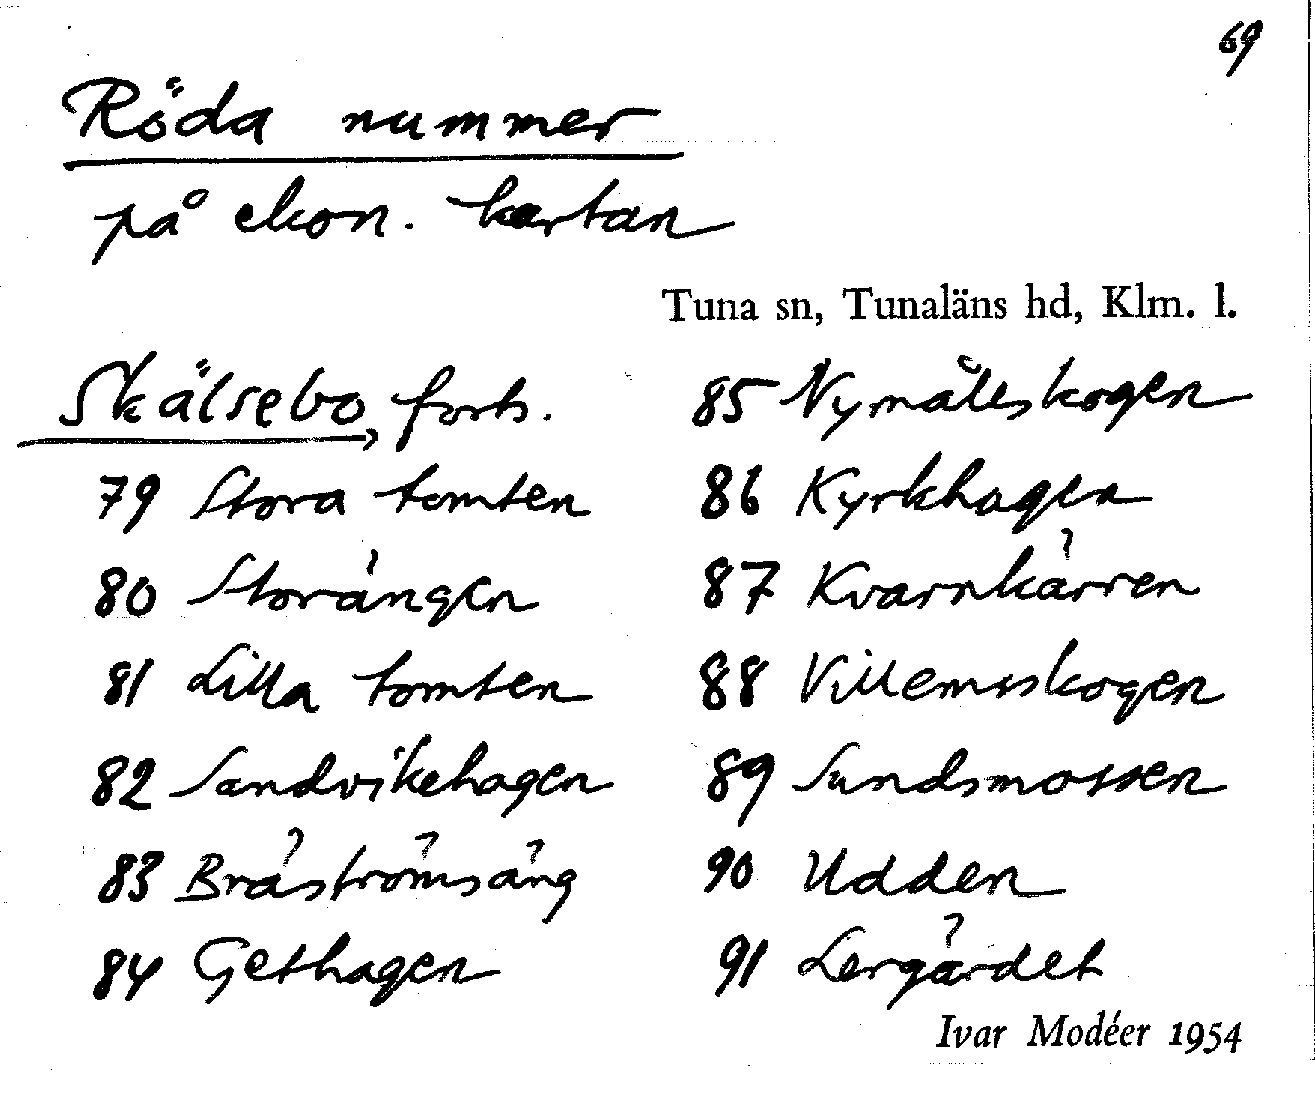 69
Röda nummer
på ekon. kartan
Tuna sn, Tunaläns hd, Klm. l.
Skälsebo, forts.
79 Stora tomten
80 Storängen
81 Lilla tomten
82 Sandvikehagen
83 Bråströmsäng
84 Gethagen
85 Nymålsskogen
86 Kyrkhagen
87 Kvarnkärren
88 Villemsskogen
89 Sundsmossen
90 Udden
91 Lergärdet
Ivar Modéer 1954